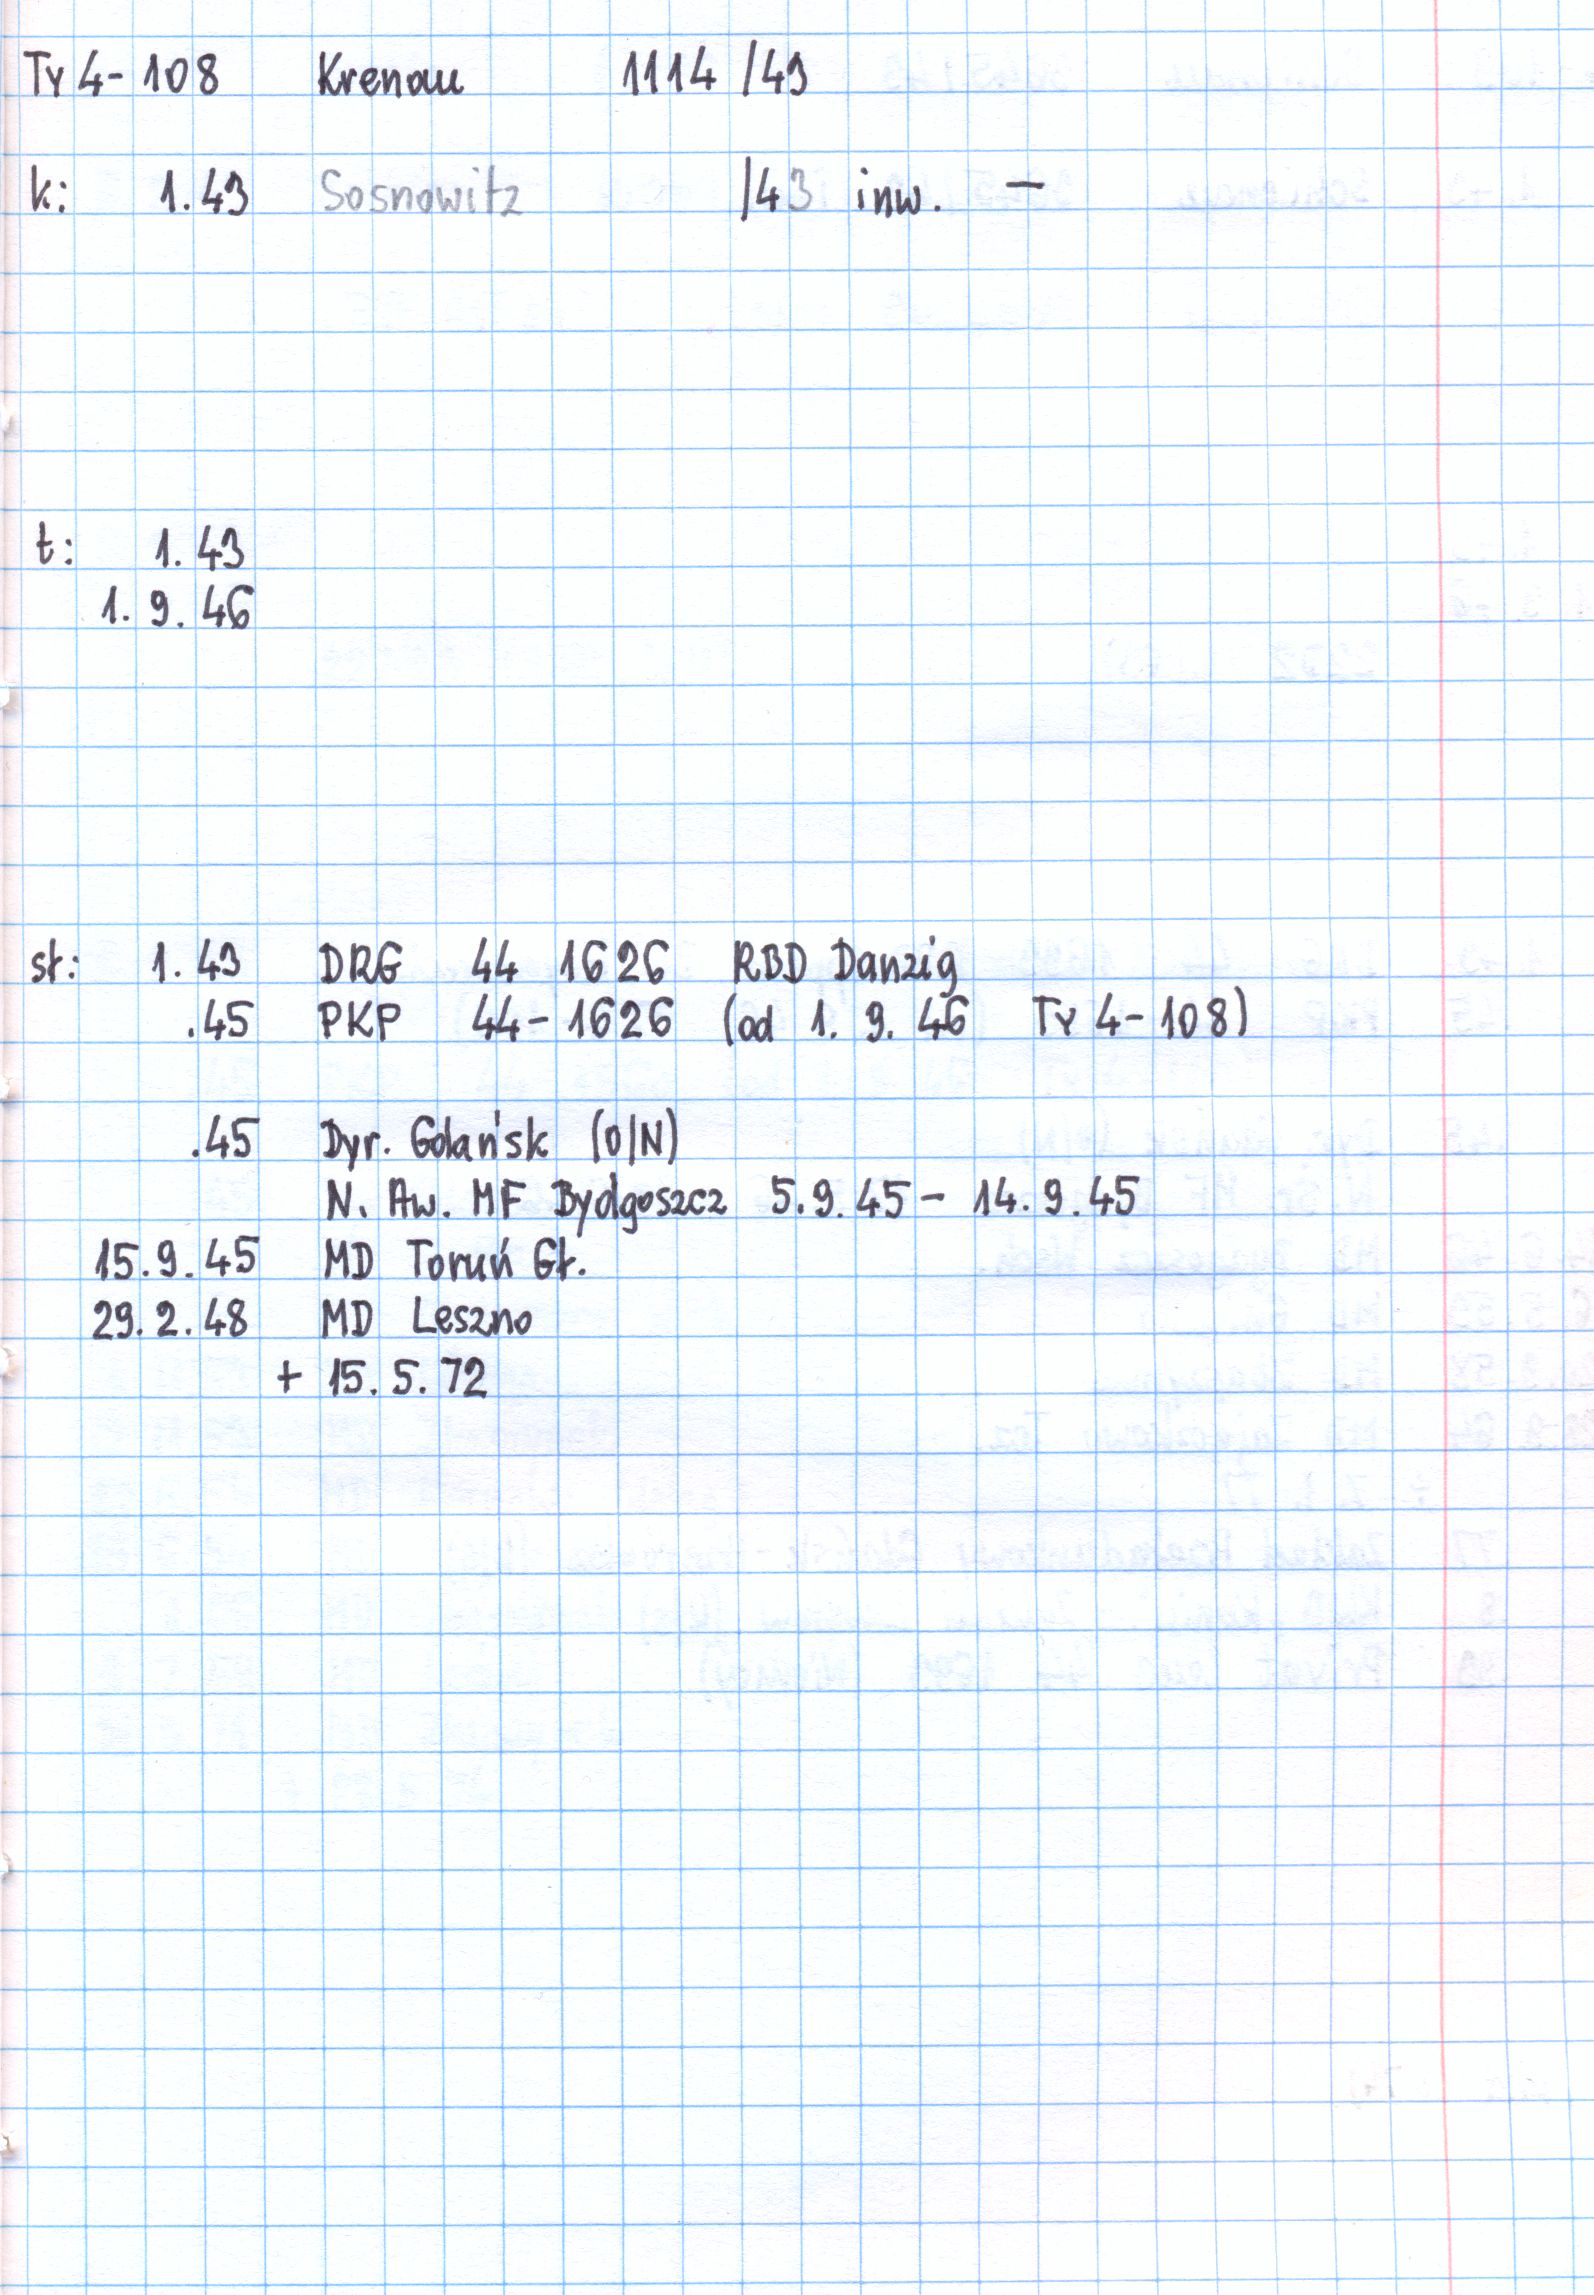 Ty 4-108 Krenau 1114 /43
k: 1.43 Sosnowitz /43 inw. –
t: 1.43
1.9.46
st: 1.43 DRG 44 1626 RBD Danzig
.45 PKP 44-1626 (od 1.9.46 Ty 4-108)
.45 Dyr. Gdańsk (O/N)
N. Aw. MF Bydgoszcz 5.9.45 – 14.9.45
15.9.45 MD Toruń Gł.
29.2.48 MD Leszno
+ 15.5.72